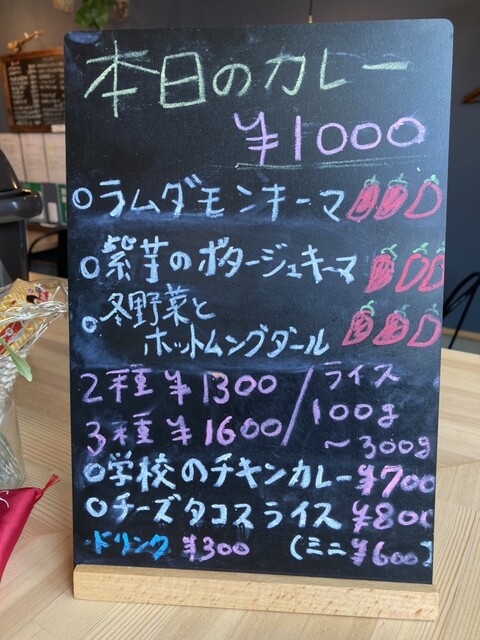 本日のカレー
¥1000
○ラムダモンキーマ
○紫芋のポタージュキーマ
○冬野菜と
ホットムングダール
2種 ¥1300
3種 ¥1600
/ライス
100g
~300g
○学校のチキンカレー ¥700
○チーズタコスライス ¥800
・ドリンク ¥300 (ミニ ¥600)